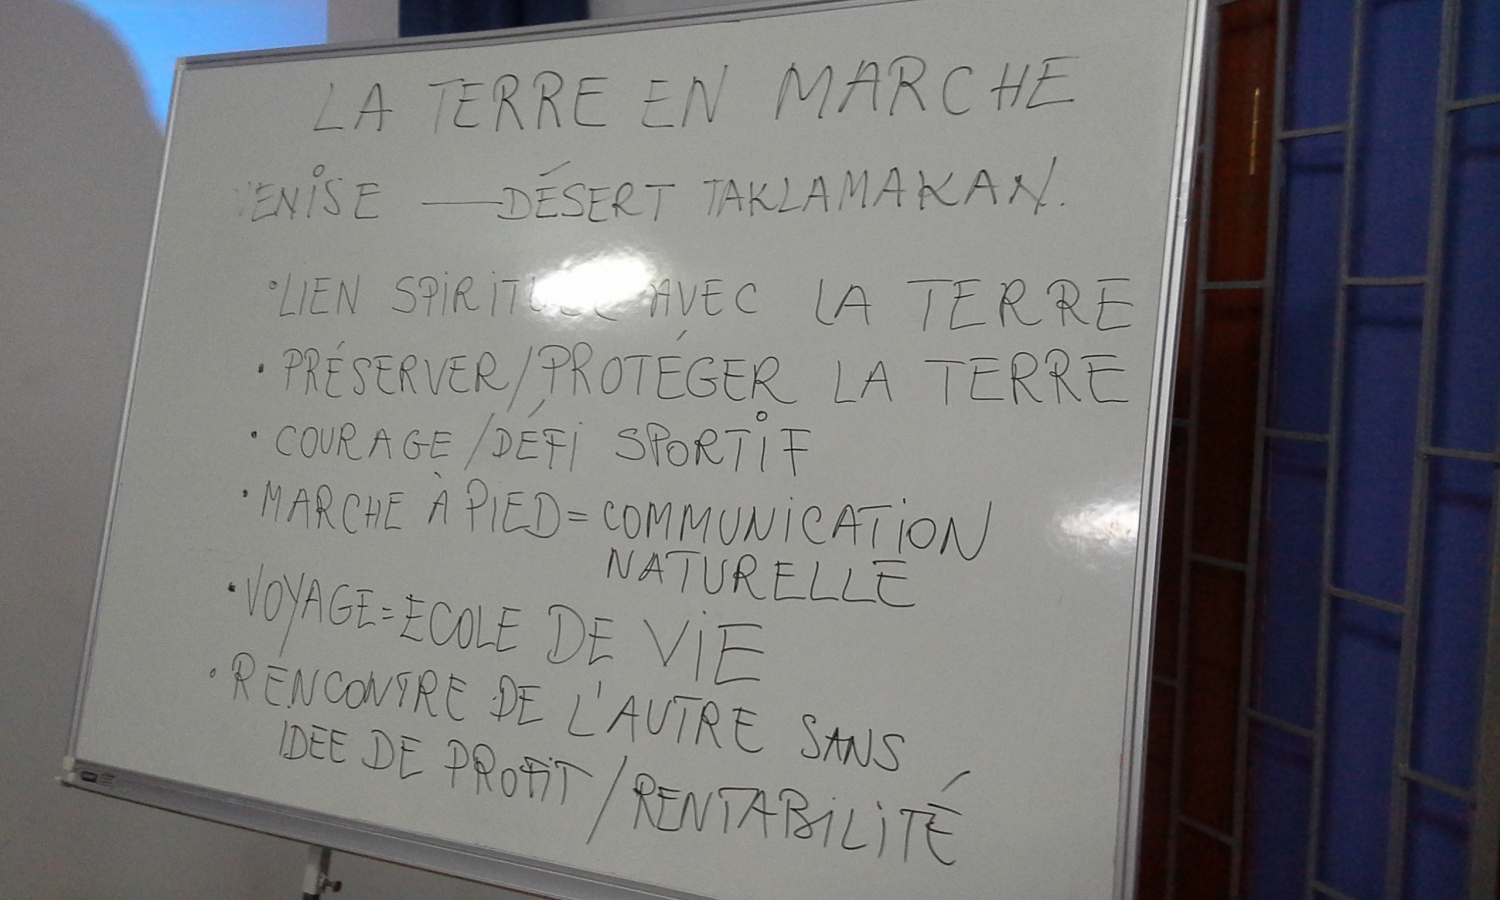 LA TERRE EN MARCHE
VENISE — DÉSERT TAKLAMAKAN.
• LIEN SPIRITUEL AVEC LA TERRE
• PRÉSERVER / PROTÉGER LA TERRE
• COURAGE / DÉFI SPORTIF
• MARCHE À PIED = COMMUNICATION
NATURELLE
• VOYAGE = ECOLE DE VIE
• RENCONTRE DE L'AUTRE SANS
IDEE DE PROFIT / RENTABILITÉ